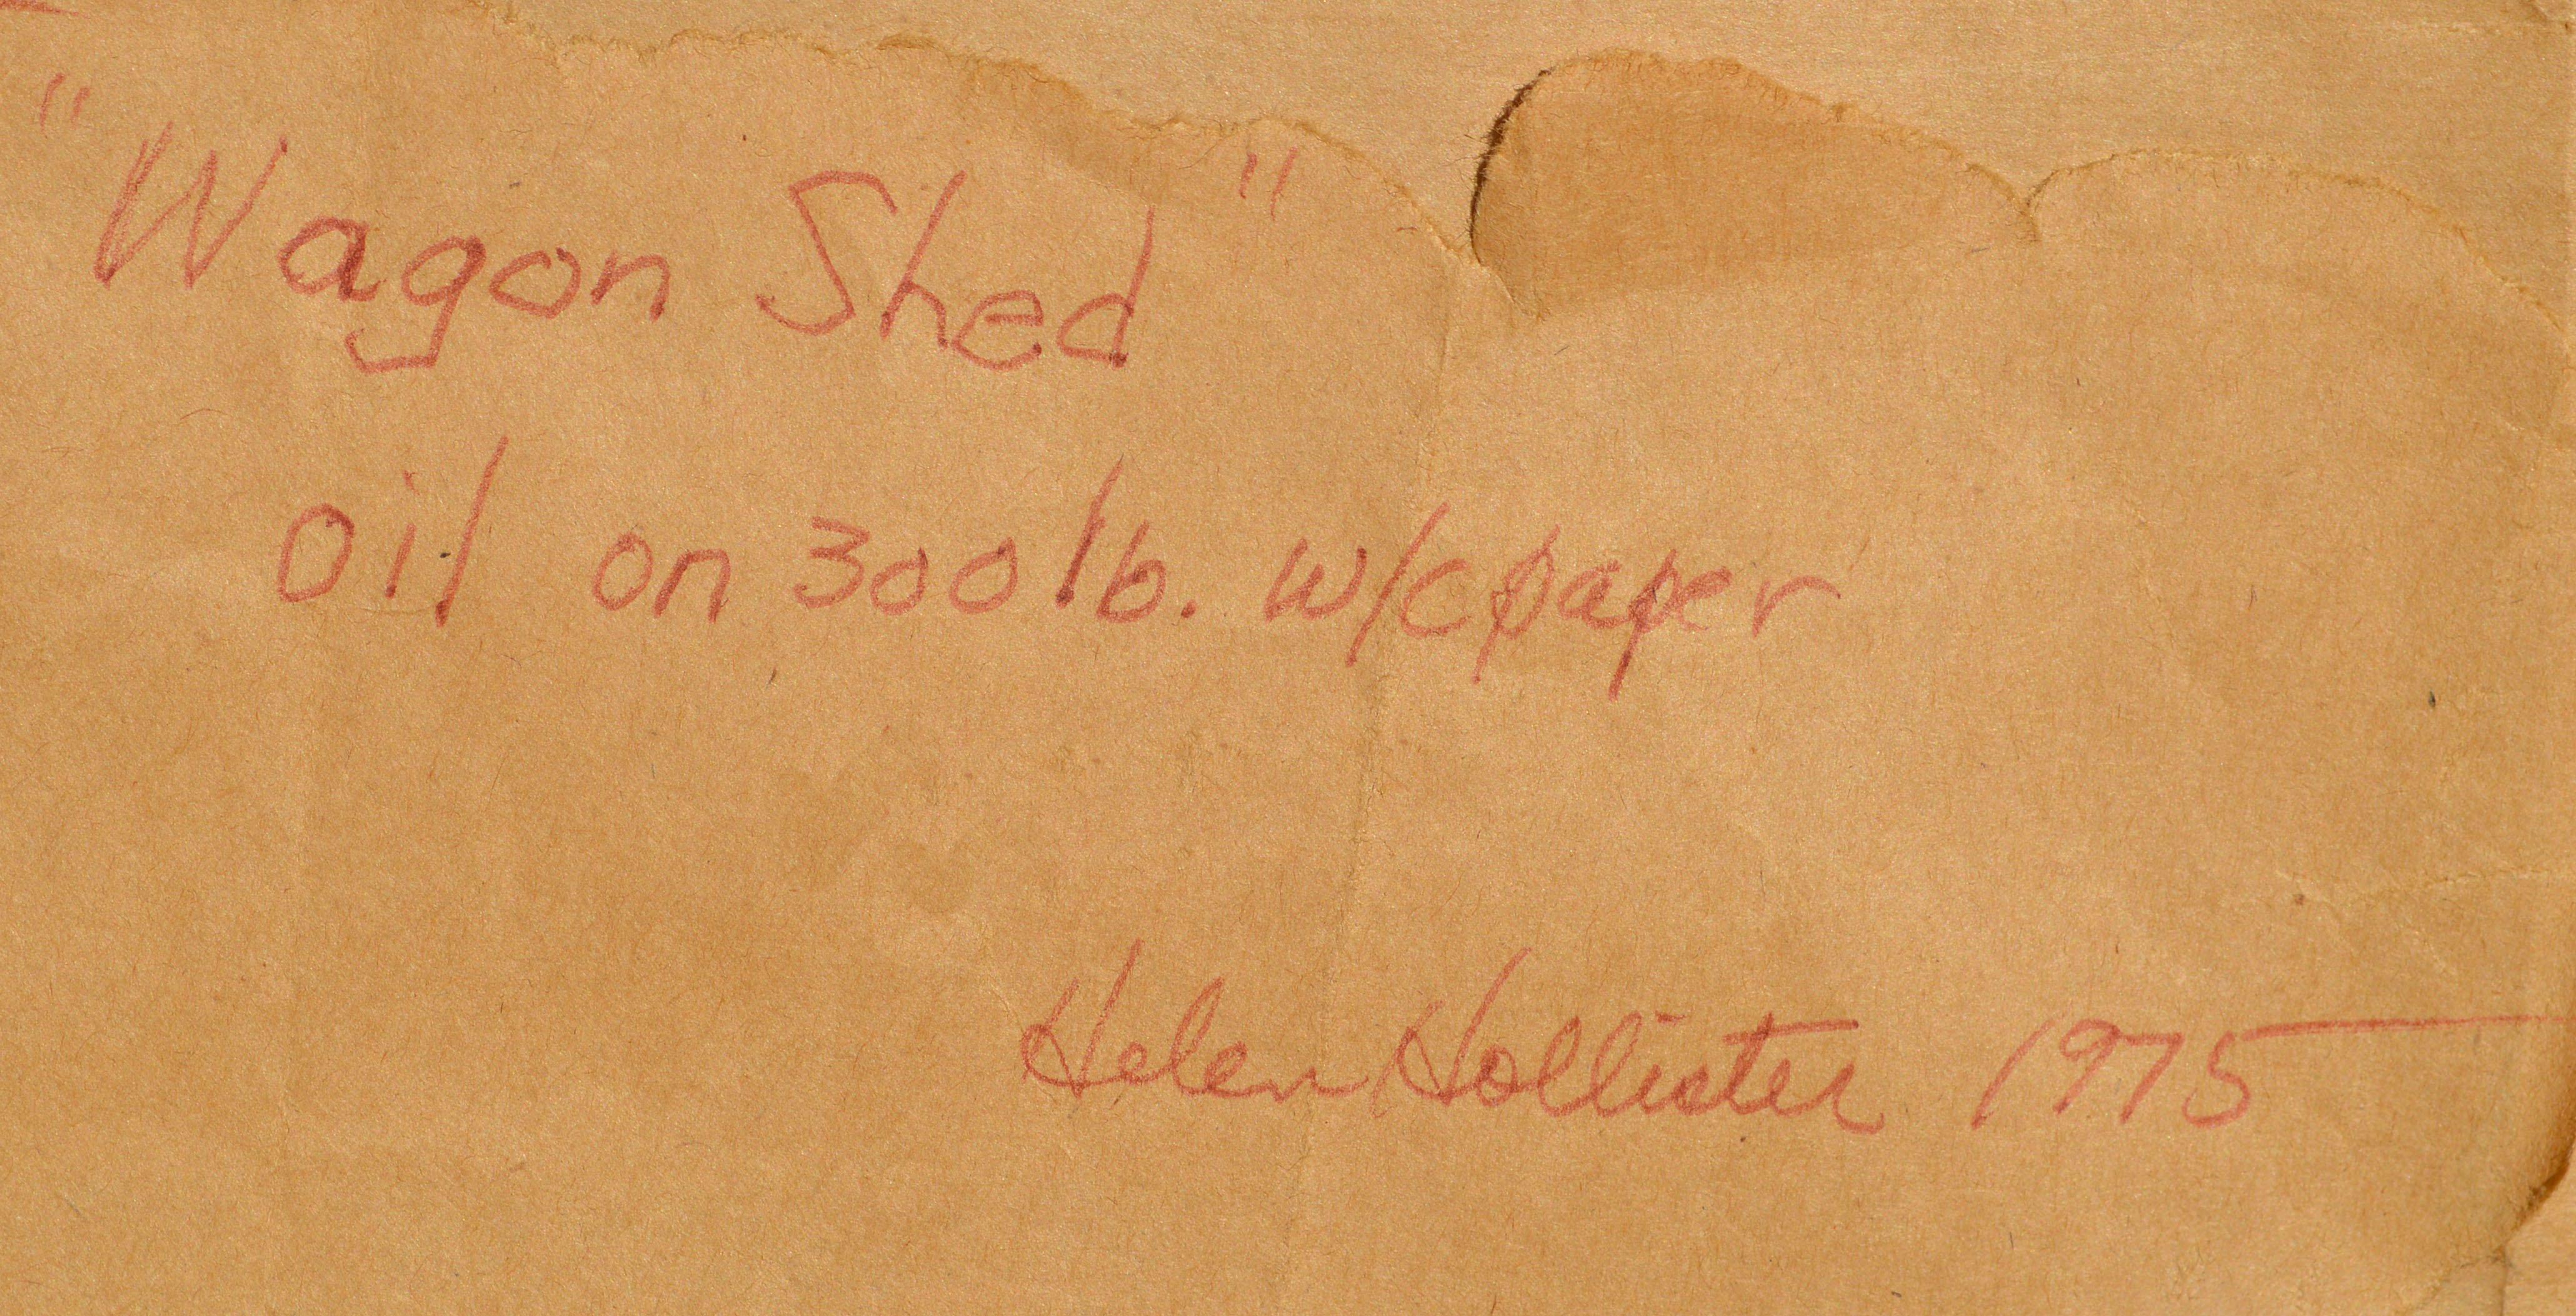 "Wagon Shed"
Oil on 300 lb. w/c paper
Helen Hollister 1975